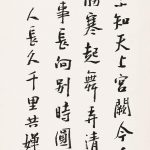 不知天上宮闕今
勝寒起舞弄清
事長向別時圓
人長久千里共嬋